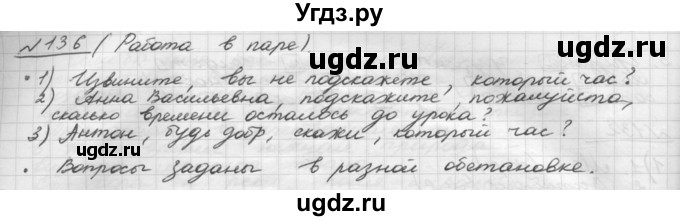 Угдз.ру
№136 (Работа в паре) ugdz.ru
ugdz.ru
• 1) Извините, вы не подскажете, который час?
2) Анна Васильевна, подскажите, пожалуйста,
сколько времени осталось до урока?
ugdz.ru ugdz.ru
3) Антон, будь добр, скажи, который час?
ugdz.ru
• Вопросы заданы в разной обстановке.
ugdz.ru